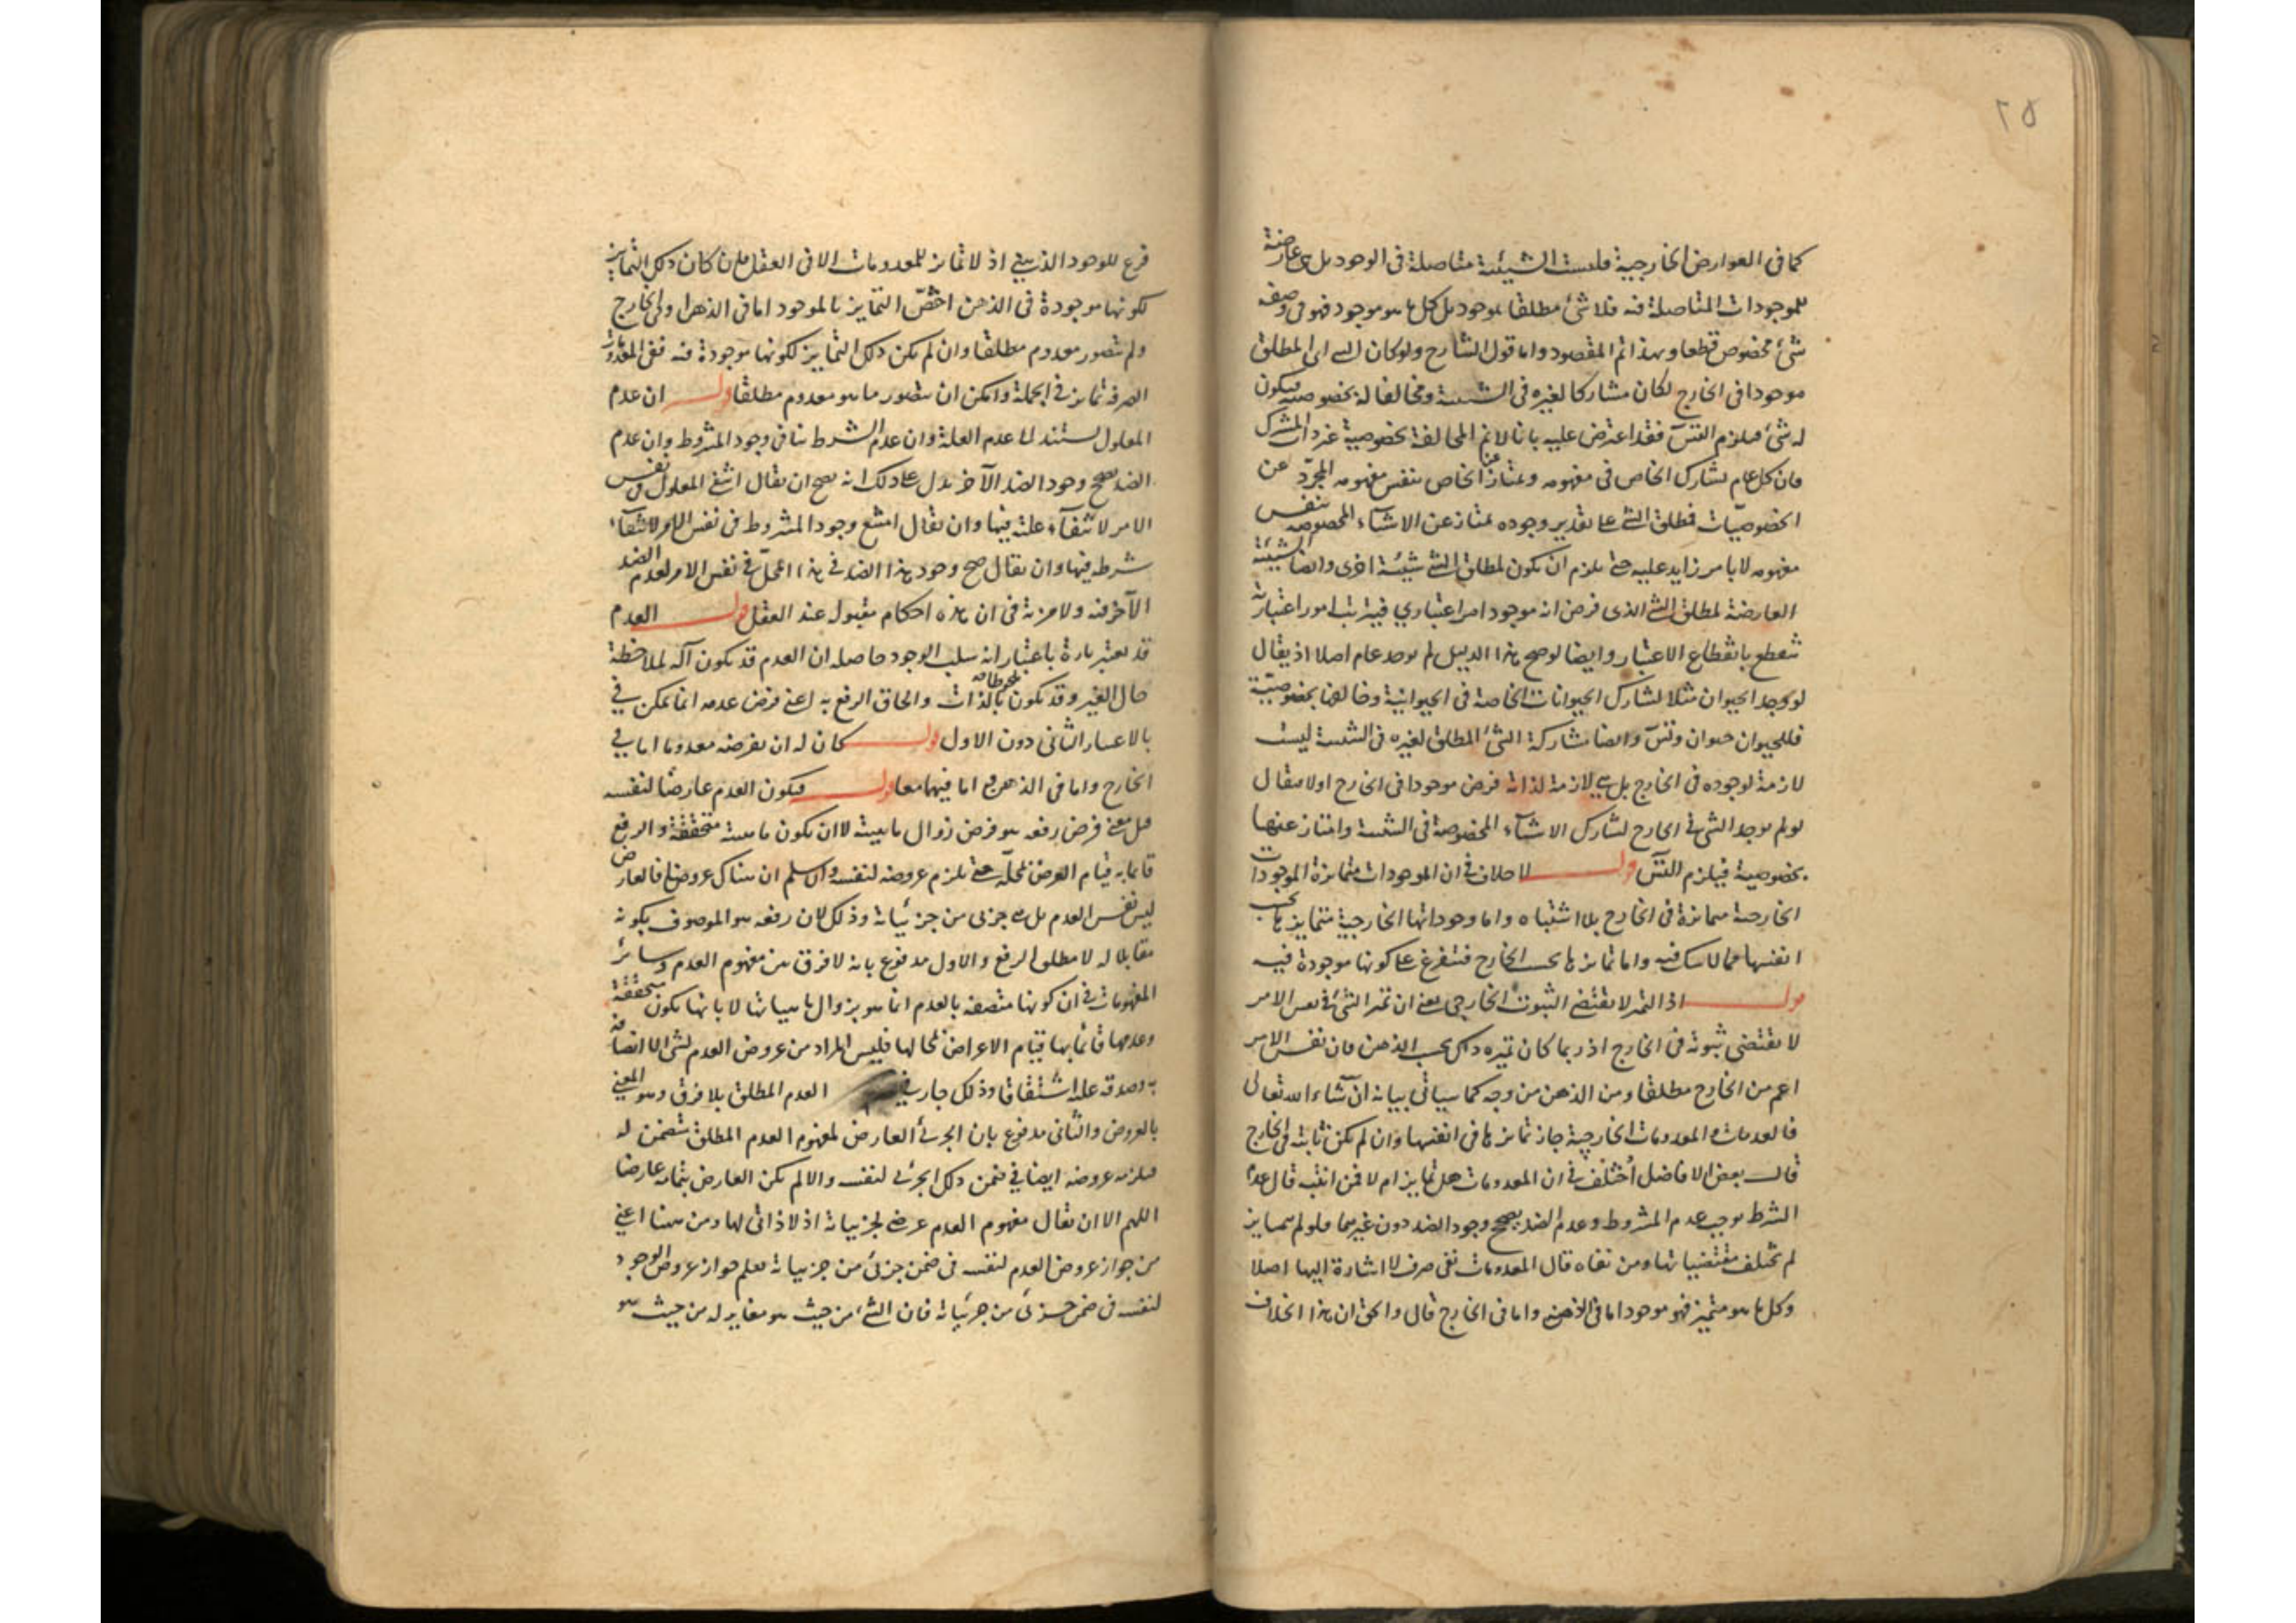 ٢٥
كما فى العوارض الخارجية فليست الشيئية متاصلة فى الوجود بل هى عارضة
للموجودات المتاصلة فيه فلا شئ مطلقا بموجود بل كل ما هو موجود فهو فى وصفه
شئ مخصوص قطعا وبهذا تم المقصود واما قول الشارح ولو كان الشئ اى المطلق
موجودا فى الخارج لكان مشاركا لغيره فى الشيئية ومخالفا له بخصوصية فيكون
له شئ فيلزم التس فقد اعترض عليه بانا لا نم المخالفة بخصوصية غير ذات المشترك
فان كل عام يشارك الخاص فى مفهومه ويمتاز عن الخاص بنفس مفهومه المجرد عن
الخصوصيات فمطلق الشئ على تقدير وجوده يمتاز عن الاشياء المخصوصة بنفس
مفهومه لا بامر زايد عليه حتى يلزم ان يكون لمطلق الشئ شيئية اخرى وايضا الشيئية
العارضة لمطلق الشئ الذى فرض انه موجود امر اعتبارى فيترتب امور اعتبارية
تنقطع بانقطاع الاعتبار وايضا لو صح هذا الدليل لم يوجد عام اصلا اذ يقال
لو وجد الحيوان مثلا لشارك الحيوانات الخاصة فى الحيوانية وخالفها بخصوصية
فللحيوان حيوان وتس وايضا مشاركة الشئ المطلق لغيره فى الشيئية ليست
لازمة لوجوده فى الخارج بل هى لازمة لذاته فرض موجودا فى الخارج اولا فيقال
لو لم يوجد الشئ فى الخارج لشارك الاشياء المخصوصة فى الشيئية وامتاز عنها
بخصوصية فيلزم التس قوله لا خلاف فى ان الموجودات متمايزة الموجودات
الخارجية متمايزة فى الخارج بلا اشتباه واما وجوداتها الخارجية فتمايزها بحسب
انفسها مما لا شك فيه واما تمايزها بحسب الخارج فتفرع على كونها موجودة فيه
قوله اذ التميز لا يقتضى الثبوت الخارجى يعنى ان تميز الشئ فى نفس الامر
لا يقتضى ثبوته فى الخارج اذ ربما كان تميزه ذلك بحسب الذهن فان نفس الامر
اعم من الخارج مطلقا ومن الذهن من وجه كما سياتى بيانه ان شاء الله تعالى
فالعدمات والمعدومات الخارجية جاز تمايزها فى انفسها وان لم يكن ثابتة فى الخارج
قال بعض الافاضل اختلف فى ان المعدومات هل تمايز ام لا فمن اثبته قال عدم
الشرط يوجب عدم المشروط وعدم الضد يصحح وجود الضد دون غيرهما فلو لم يتمايز
لم تختلف مقتضياتها ومن نفاه قال المعدومات نفى صرف لا اشارة اليها اصلا
وكل ما هو متميز فهو موجود اما فى الذهن واما فى الخارج قال والحق ان هذا الخلاف
فرع للوجود الذهنى اذ لا تمايز للمعدومات الا فى العقل فان كان ذلك التمايز
لكونها موجودة فى الذهن اختص التمايز بالموجود اما فى الذهن او فى الخارج
ولم يتصور معدوم مطلقا وان لم يكن ذلك التمايز لكونها موجودة فيه ففى المعدومات
الصرفة تمايز فى الجملة وامكن ان يتصور ما هو معدوم مطلقا قوله ان عدم
المعلول يستند الى عدم العلة وان عدم الشرط ينافى وجود المشروط وان عدم
الضد يصحح وجود الضد الآخر يدل على ذلك انه يصح ان يقال انتفى المعلول فى نفس
الامر لانتفاء علته فيها وان يقال امتنع وجود المشروط فى نفس الامر لانتفاء
شرطه فيها وان يقال صح وجود هذا الضد فى هذا المحل فى نفس الامر لعدم الضد
الآخر فيه ولا مرية فى ان هذه احكام مقبول عند العقل قوله العدم
قد يعتبر تارة باعتبار انه سلب الوجود حاصله ان العدم قد يكون آلة لملاحظة
حال الغير وقد يكون ملحوظا بالذات والحاق الرفع به اعنى فرض عدمه انما يمكن فى
بالاعتبار الثانى دون الاول قوله كان له ان يفرضه معدوما اما فى
الخارج واما فى الذهن واما فيهما معا قوله فيكون العدم عارضا لنفسه
قيل معنى فرض رفعه هو فرض زوال ماهيته لا ان يكون ماهيته متحققة والرفع
قائما به قيام العرض بمحله حتى يلزم عروضه لنفسه ولئن سلم ان هناك عروضا فالعارض
ليس نفس العدم بل هو جزئى من جزئياته وذلك لان رفعه هو الموصوف بكونه
مقابلا له لا مطلق الرفع والاول مدفوع بانه لا فرق بين مفهوم العدم وسائر
المفهومات فى ان كونها متصفة بالعدم انما هو بزوال ماهياتها لا بانها يكون متحققة
وعدمها قائما بها قيام الاعراض بمحالها فليس المراد من عروض العدم لشئ الا اتصافه
به وصدقه عليه اشتقاقا وذلك جار فى العدم المطلق بلا فرق وهو المعنى
بالعروض والثانى مدفوع بان الجزئى العارض لمفهوم العدم المطلق متضمن له
فيلزمه عروضه ايضا فى ضمن ذلك الجزئى لنفسه والا لم يكن العارض بتمامه عارضا
اللهم الا ان يقال مفهوم العدم عرضى لجزئياته اذ لا ذاتى لها ومن هنا اعنى
من جواز عروض العدم لنفسه فى ضمن جزئى من جزئياته يعلم جواز عروض الوجود
لنفسه فى ضمن جزئى من جزئياته فان الشئ من حيث هو مغاير له من حيث هو